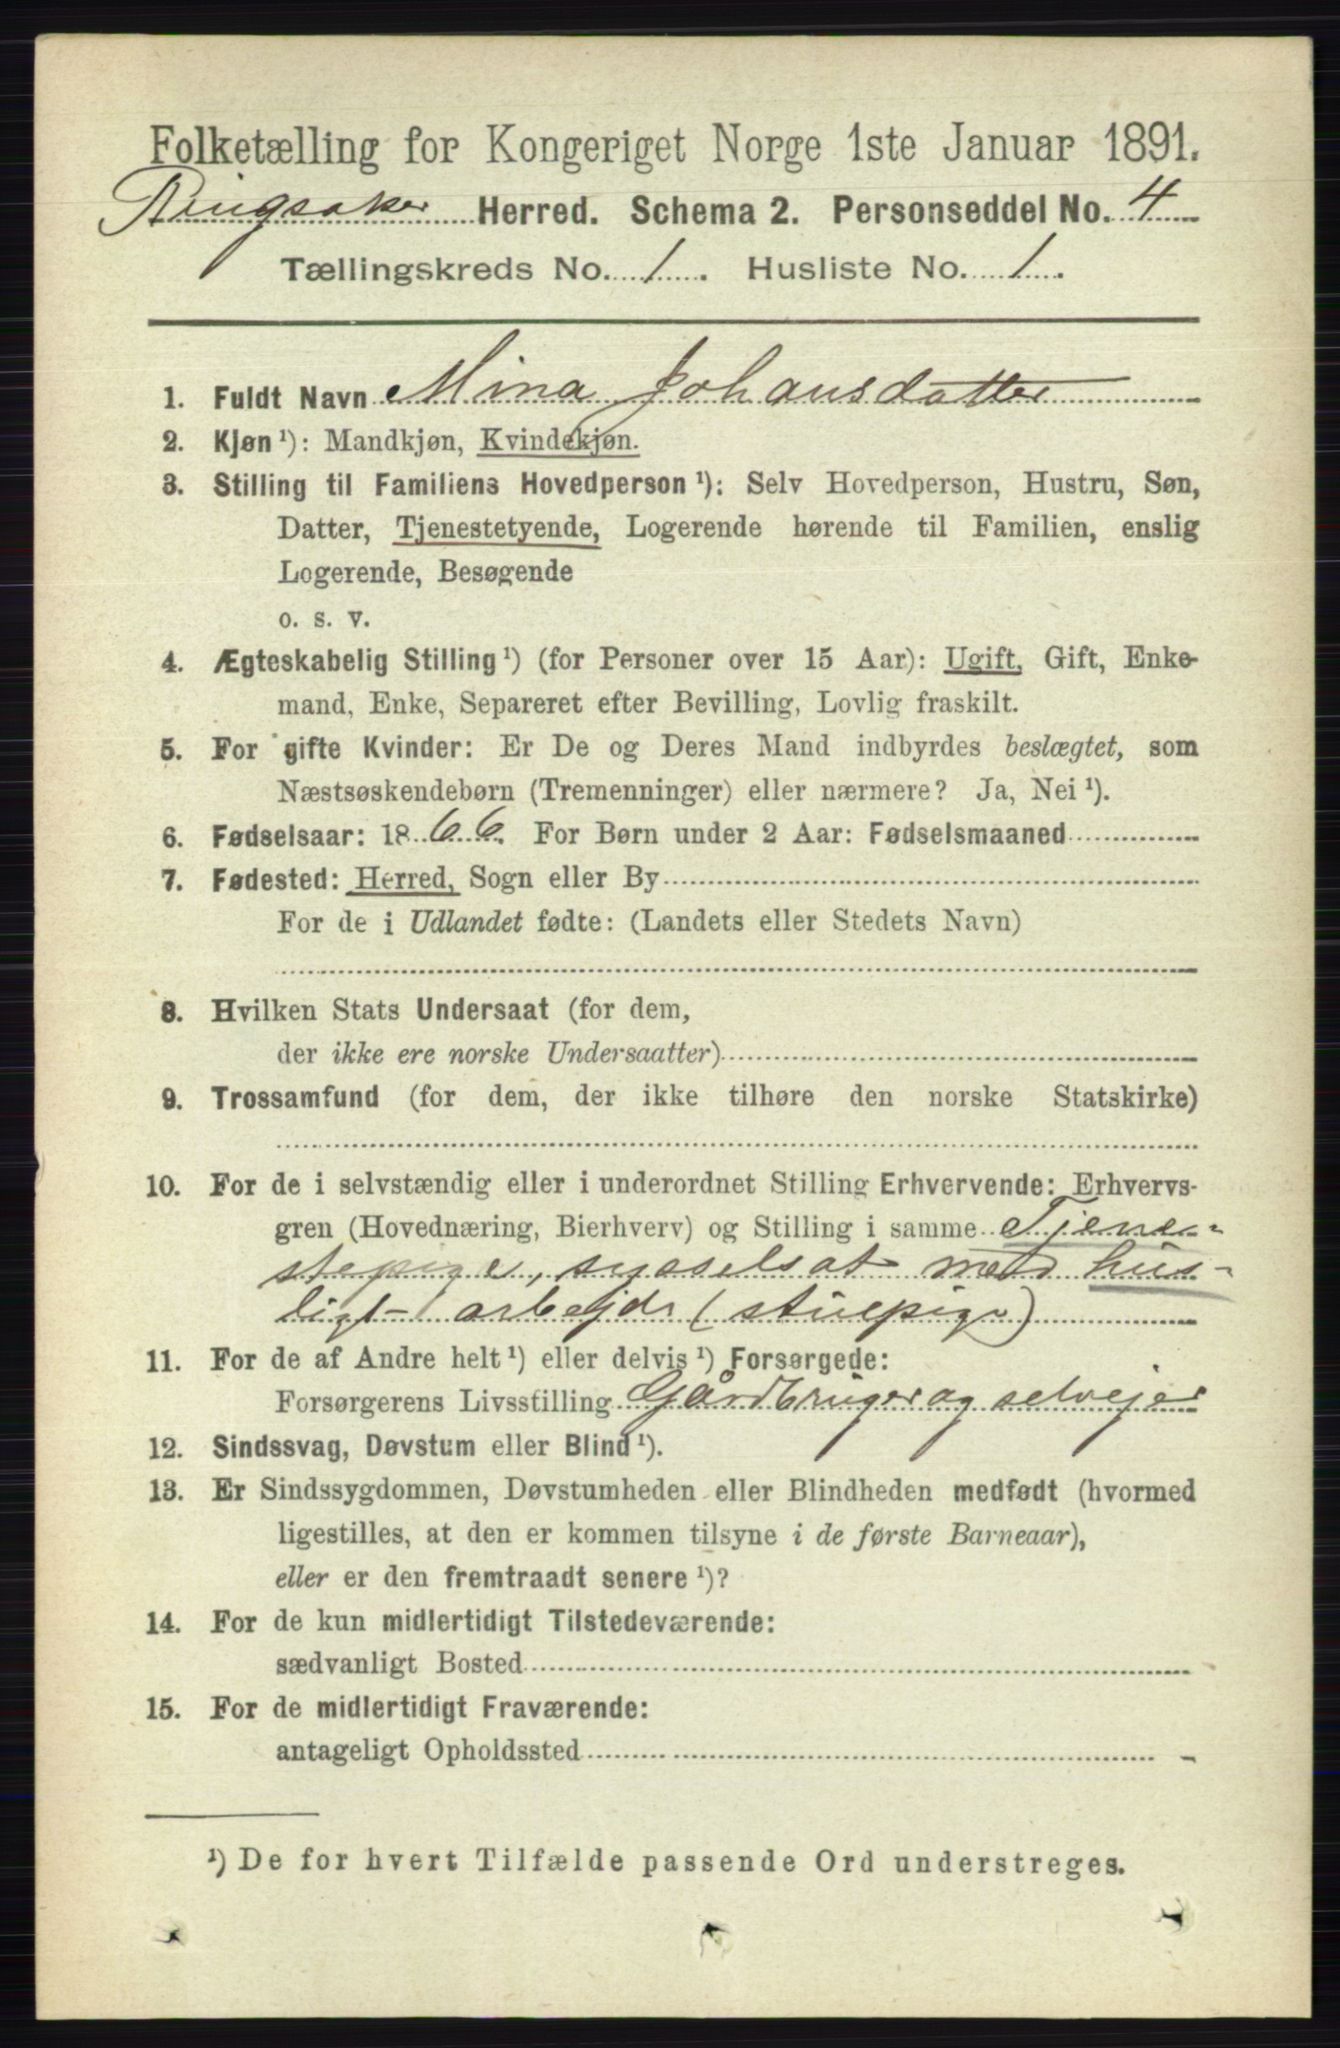 Folketælling for Kongeriget Norge 1ste Januar 1891.
Ringsaker Herred. Schema 2. Personseddel No. 4
Tællingskreds No. 1. Husliste No. 1.
1. Fuldt Navn Mina Johansdatter
2. Kjøn¹): Mandkjøn, Kvindekjøn.
3. Stilling til Familiens Hovedperson¹): Selv Hovedperson, Hustru, Søn,
Datter, Tjenestetyende, Logerende hørende til Familien, enslig
Logerende, Besøgende
o. s. v.
4. Ægteskabelig Stilling¹) (for Personer over 15 Aar): Ugift, Gift, Enke-
mand, Enke, Separeret efter Bevilling, Lovlig fraskilt.
5. For gifte Kvinder: Er De og Deres Mand indbyrdes beslægtet, som
Næstsøskendebørn (Tremenninger) eller nærmere? Ja, Nei¹).
6. Fødselsaar: 1866. For Børn under 2 Aar: Fødselsmaaned
7. Fødested: Herred, Sogn eller By
For de i Udlandet fødte: (Landets eller Stedets Navn)
8. Hvilken Stats Undersaat (for dem,
der ikke ere norske Undersaatter)
9. Trossamfund (for dem, der ikke tilhøre den norske Statskirke)
10. For de i selvstændig eller i underordnet Stilling Erhvervende: Erhvervs-
gren (Hovednæring, Bierhverv) og Stilling i samme Tjene-
stepige, sysselsat med hus-
ligt arbejde (stuepige)
11. For de af Andre helt¹) eller delvis¹) Forsørgede:
Forsørgerens Livsstilling Gårdbruger og selvejer
12. Sindssvag, Døvstum eller Blind¹).
13. Er Sindssygdommen, Døvstumheden eller Blindheden medfødt (hvormed
ligestilles, at den er kommen tilsyne i de første Barneaar),
eller er den fremtraadt senere¹)?
14. For de kun midlertidigt Tilstedeværende:
sædvanligt Bosted
15. For de midlertidigt Fraværende:
antageligt Opholdssted
¹) De for hvert Tilfælde passende Ord understreges.